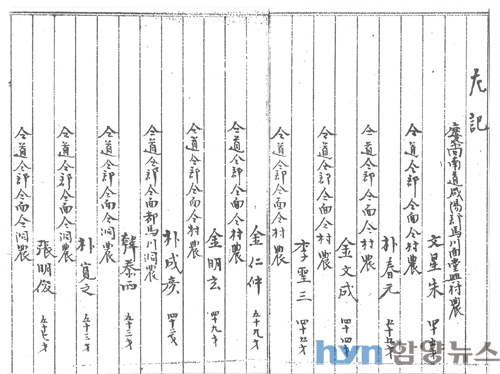 左記
慶尚南道咸陽郡馬川面堂村農
文星朱
仝道仝郡仝面仝村農
朴春元
仝道仝郡仝面仝村農
金文成 四十四才
仝道仝郡仝面仝村農
李聖三
仝道仝郡仝面仝村農
金仁仲 五十九才
仝道仝郡仝面仝村農
金明玄 四十九才
仝道仝郡仝面仝村農
朴成彦
仝道仝郡仝面都馬川洞農
韓泰 五十三才
仝道仝郡仝面仝洞農
朴寬之 五十三才
仝道仝郡仝面仝洞農
張明俊 五十七才
仝道仝郡仝面仝洞農
hyn 함양뉴스